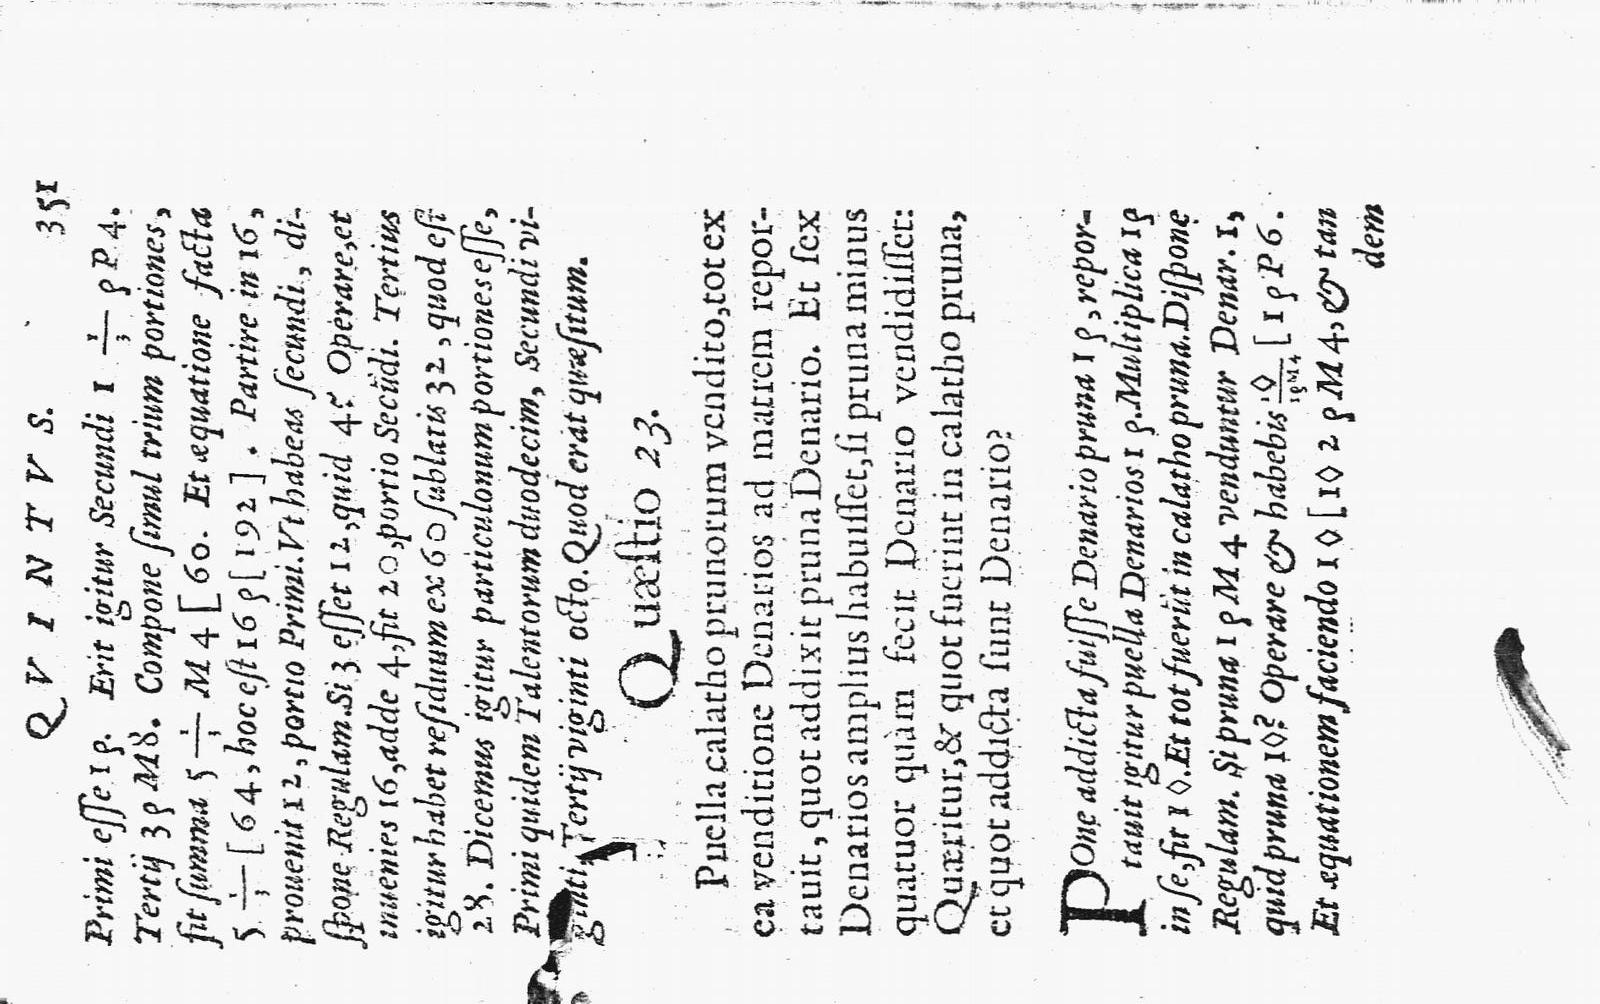 QVINTVS. 351
Primi eſſe 1ρ. Erit igitur Secundi 1 1/3 ρ P 4.
Tertij 3 ρ M 8. Compone ſimul trium portiones,
fit ſumma 5 1/3 M 4 [ 60. Et æquatione facta
5 1/3 [ 64, hoc eſt 16 ρ [ 192 ]. Partire in 16,
prouenit 12, portio Primi. Vt habeas ſecundi, di-
ſpone Regulam. Si 3 eſſet 12, quid 4? Operare, et
inuenies 16, adde 4, fit 20, portio Secũdi. Tertius
igitur habet reſiduum ex 60 ſublatis 32, quod eſt
28. Dicemus igitur particulonum portiones eſſe,
Primi quidem Talentorum duodecim, Secundi vi-
ginti, Tertij viginti octo. Quod erat quæſitum.
Quæſtio 23.
Puella calatho prunorum vendito, tot ex
ea venditione Denarios ad matrem repor-
tauit, quot addixit pruna Denario. Et ſex
Denarios amplius habuiſſet, ſi pruna minus
quatuor quàm fecit Denario vendidiſſet:
Quæritur, & quot fuerint in calatho pruna,
et quot addicta ſunt Denario?
POne addicta fuiſſe Denario pruna 1ρ, repor-
tauit igitur puella Denarios 1 ρ. Multiplica 1ρ
in ſe, fit 1◊. Et tot fuerũt in calatho pruna. Diſpone
Regulam. Si pruna 1ρ M 4 venduntur Denar. 1,
quid pruna 1◊? Operare & habebis 1◊/1ρM4 [ 1 ρ P 6.
Et æquationem faciendo 1◊ [ 1◊ 2 ρ M 4, & tan
dem